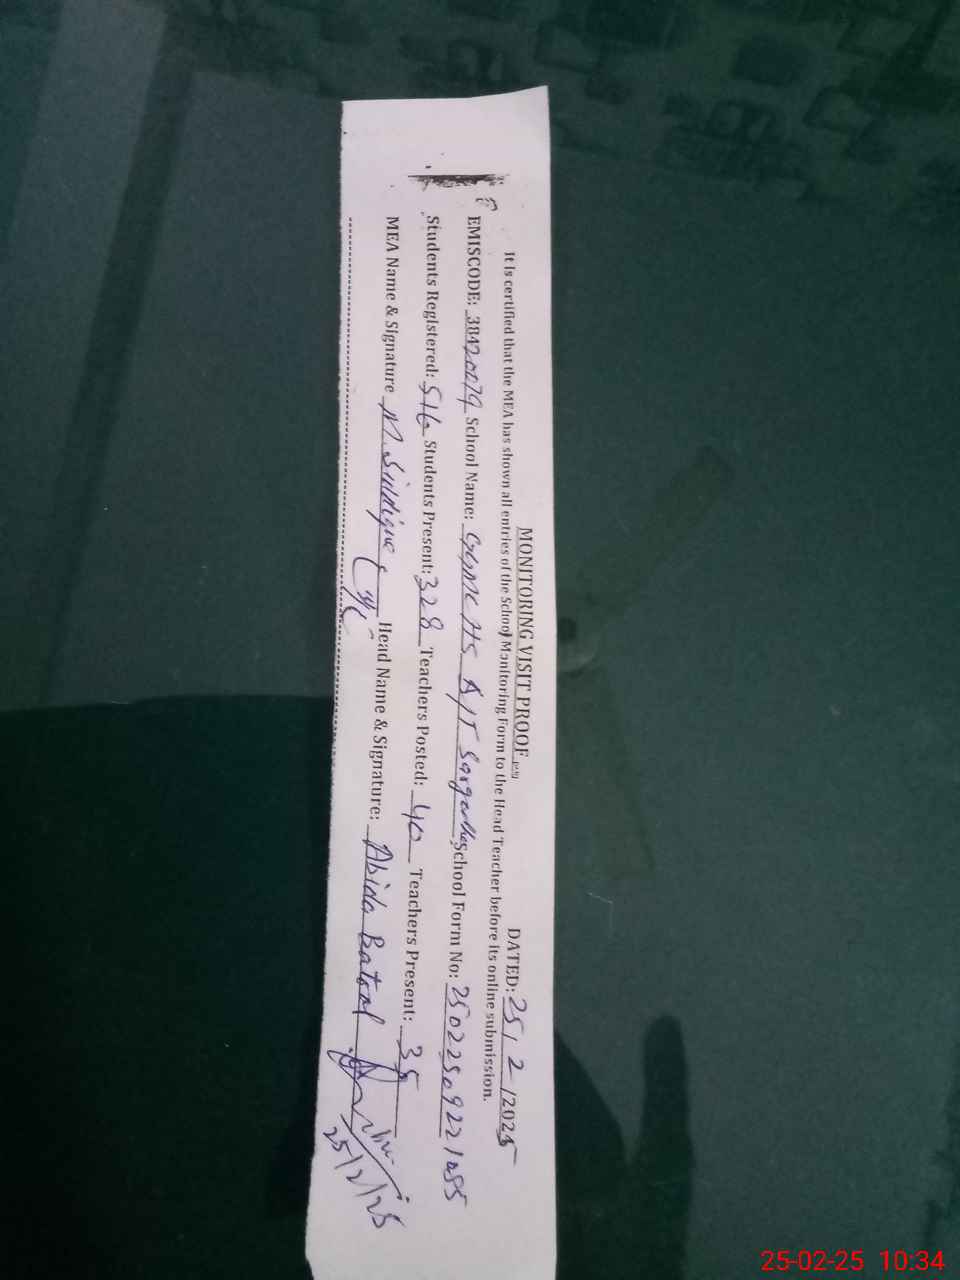 MONITORING VISIT PROOF DATED: 25/2/2025
It is certified that the MEA has shown all entries of the School Monitoring Form to the Head Teacher before its online submission.
EMISCODE: 38420079 School Name: School Form No:
Students Registered: 516 Students Present: 328 Teachers Posted: 40 Teachers Present: 35
MEA Name & Signature M. Siddique Head Name & Signature: Abida Batool
25/2/25
25-02-25 10:34